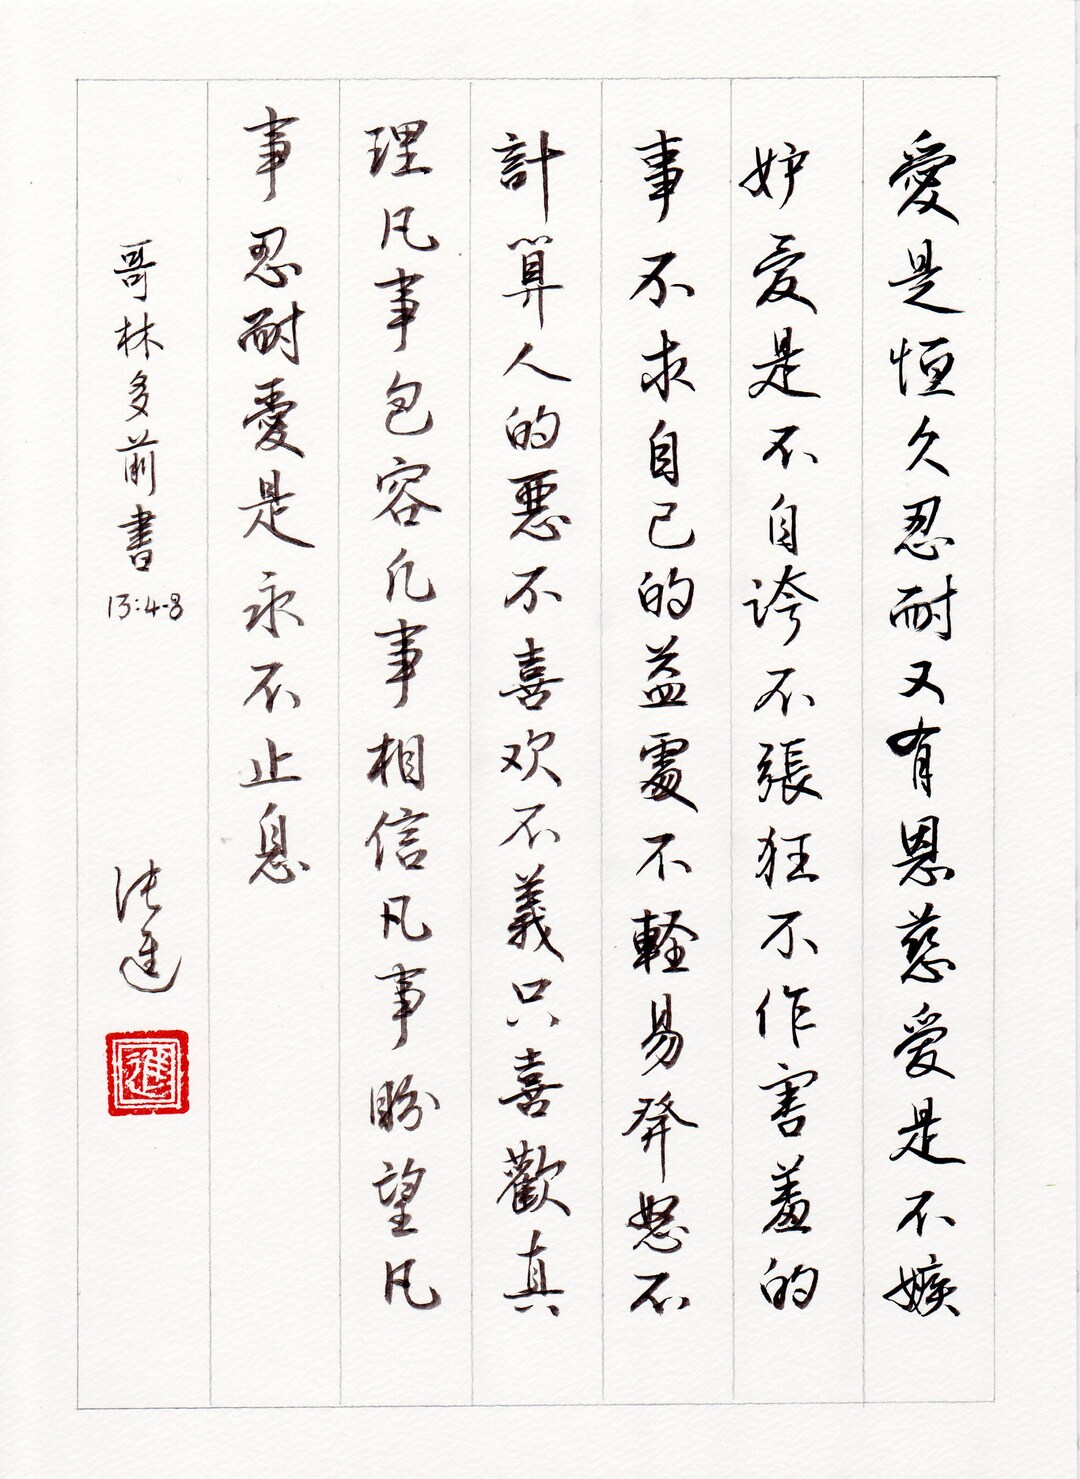 愛是恒久忍耐又有恩慈爱是不嫉
妒爱是不自誇不張狂不作害羞的
事不求自己的益處不軽易發怒不
計算人的悪不喜欢不義只喜歡真
理凡事包容凡事相信凡事盼望凡
事忍耐愛是永不止息
哥林多前書
13:4-8
张進
進